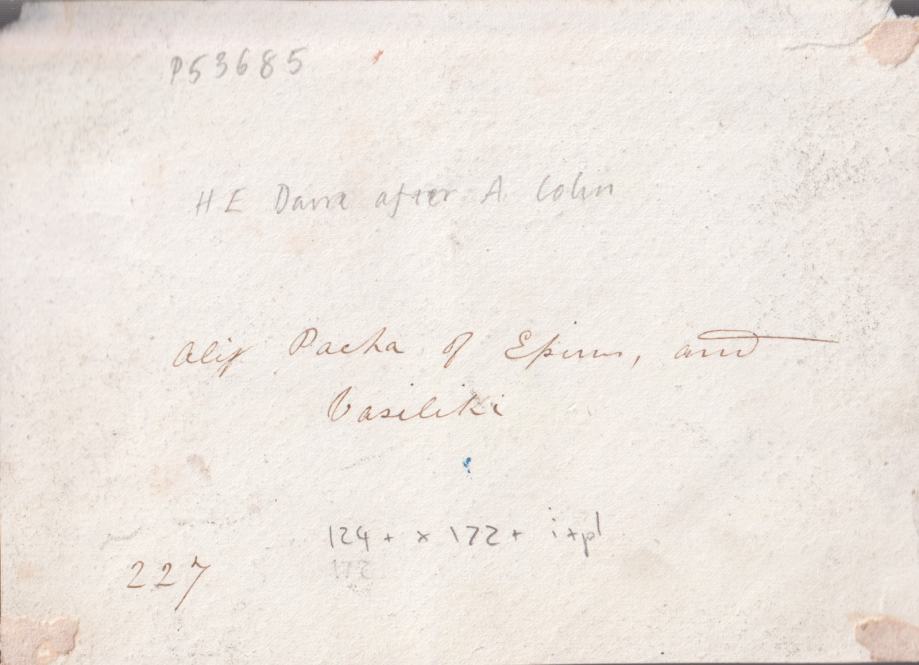 P53685
H E Dawe after A. Colin
Alix Pacha of Epirus, and
Vasiliki
124 + x 172 + i+pl
172
227